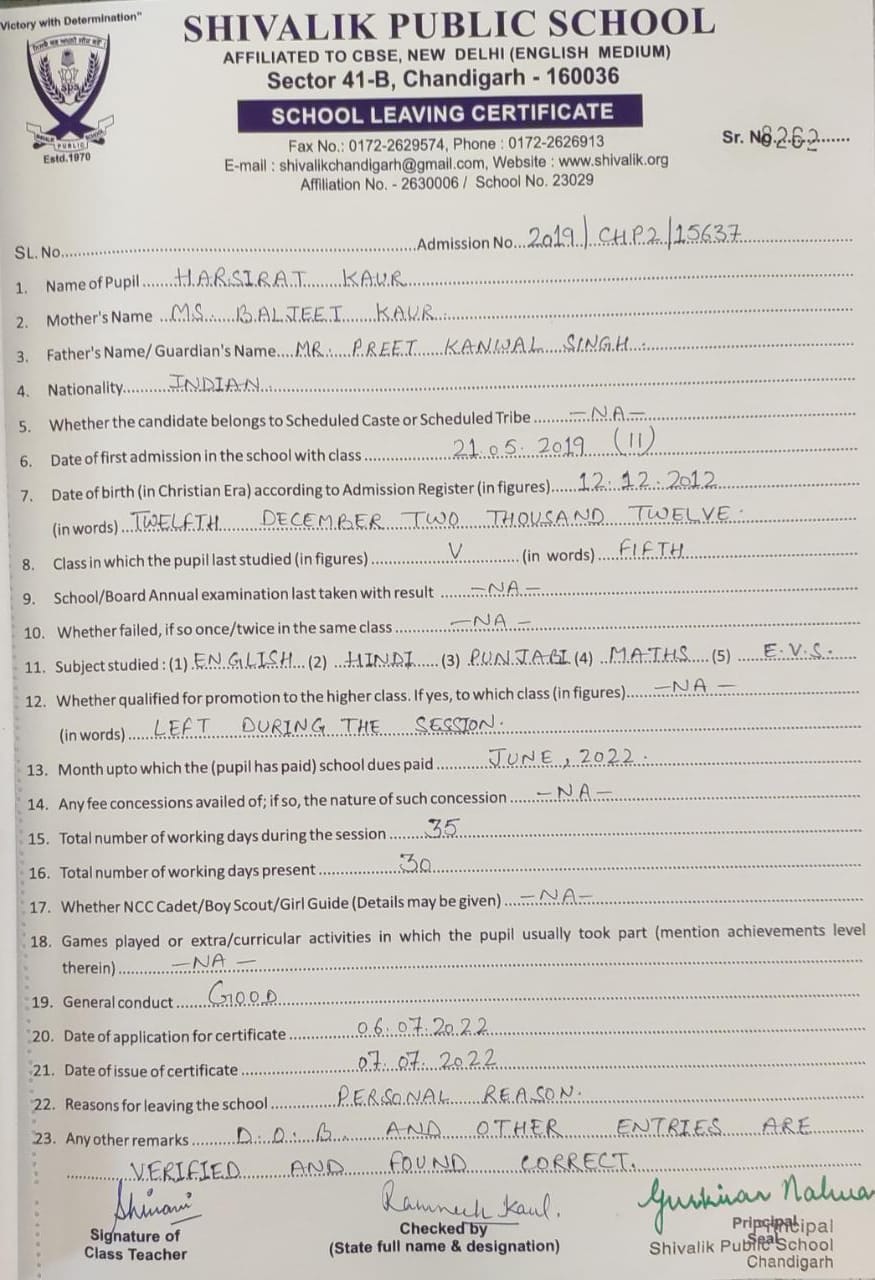 Victory with Determination"
SHIVALIK PUBLIC SCHOOL
AFFILIATED TO CBSE, NEW DELHI (ENGLISH MEDIUM)
Sector 41-B, Chandigarh - 160036
SCHOOL LEAVING CERTIFICATE
sps
SHIVALIK PUBLIC SCHOOL
Estd.1970
Fax No.: 0172-2629574, Phone : 0172-2626913
Sr. No. 8262
E-mail : shivalikchandigarh@gmail.com, Website : www.shivalik.org
Affiliation No. - 2630006 / School No. 23029
SL. No. Admission No. 2019/CHP2/15637
1. Name of Pupil HARSIRAT KAUR
2. Mother's Name MS. BALJEET KAUR.
3. Father's Name/ Guardian's Name MR. PREET KANWAL SINGH.
4. Nationality INDIAN.
5. Whether the candidate belongs to Scheduled Caste or Scheduled Tribe -NA-
6. Date of first admission in the school with class 21.05.2019 (II)
7. Date of birth (in Christian Era) according to Admission Register (in figures) 12.12.2012
(in words) TWELFTH DECEMBER TWO THOUSAND TWELVE.
8. Class in which the pupil last studied (in figures) V (in words) FIFTH
9. School/Board Annual examination last taken with result -NA-
10. Whether failed, if so once/twice in the same class -NA-
11. Subject studied : (1) ENGLISH (2) HINDI (3) PUNJABI (4) MATHS (5) E.V.S.
12. Whether qualified for promotion to the higher class. If yes, to which class (in figures) -NA-
(in words) LEFT DURING THE SESSION.
13. Month upto which the (pupil has paid) school dues paid JUNE, 2022.
14. Any fee concessions availed of; if so, the nature of such concession -NA-
15. Total number of working days during the session 35
16. Total number of working days present 30
17. Whether NCC Cadet/Boy Scout/Girl Guide (Details may be given) -NA-
18. Games played or extra/curricular activities in which the pupil usually took part (mention achievements level
therein) -NA-
19. General conduct GOOD
20. Date of application for certificate 06.07.2022
21. Date of issue of certificate 07.07.2022
22. Reasons for leaving the school PERSONAL REASON.
23. Any other remarks D.O.B. AND OTHER ENTRIES ARE
VERIFIED AND FOUND CORRECT.
Shivani Ramneek Kaul. Gurkiran Nalwa
Signature of
Class Teacher
Checked by
(State full name & designation)
Principal
Seal
Principal
Shivalik Public School
Chandigarh